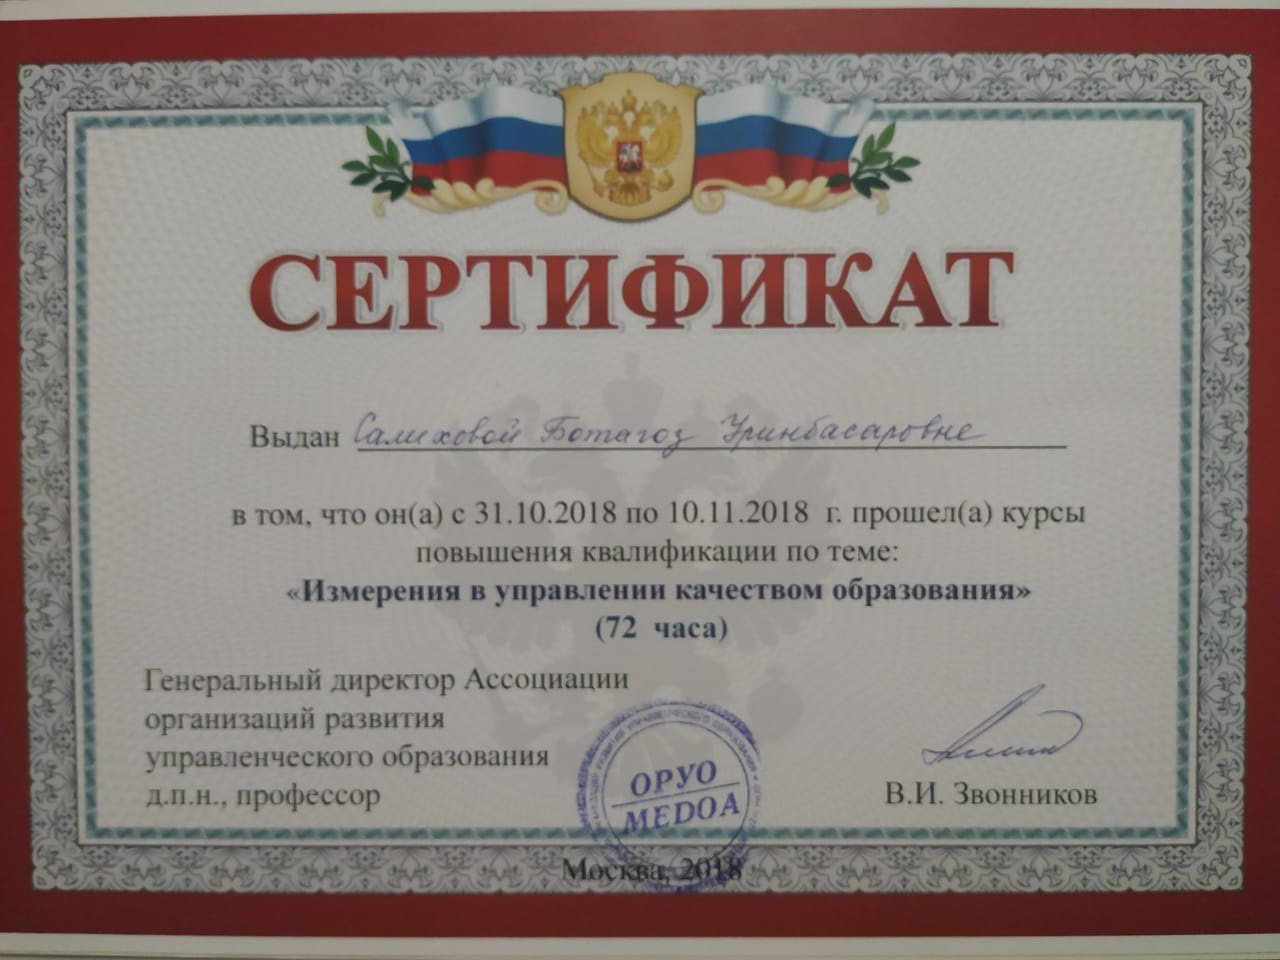 СЕРТИФИКАТ
Выдан Салиховой Ботагоз Уринбасаровне
в том, что он(а) с 31.10.2018 по 10.11.2018 г. прошел(а) курсы
повышения квалификации по теме:
«Измерения в управлении качеством образования»
(72 часа)
Генеральный директор Ассоциации
организаций развития
управленческого образования
д.п.н., профессор
ОРУО
MEDOA
В.И. Звонников
Москва, 2018